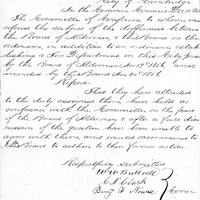 City of Cambridge
In the Common Council, Dec.
The Committee of Conference to whom was
referred the subject of the difference between
the Board of Aldermen & this Board on the
ordinance, in addition to an ordinance estab-
lishing a Fire Department in this City, passed
by the Board of Aldermen, Nov
amended by this Board Nov
Report
That they have attended
to the duty assigned them, have held a
conference with the Committee on the part
of the Board of Aldermen & after a full dis-
cussion of the question have been unable to
agree with them and would recommend to
this Board to adhere to their former action.
Respectfully submitted
Clark
Com